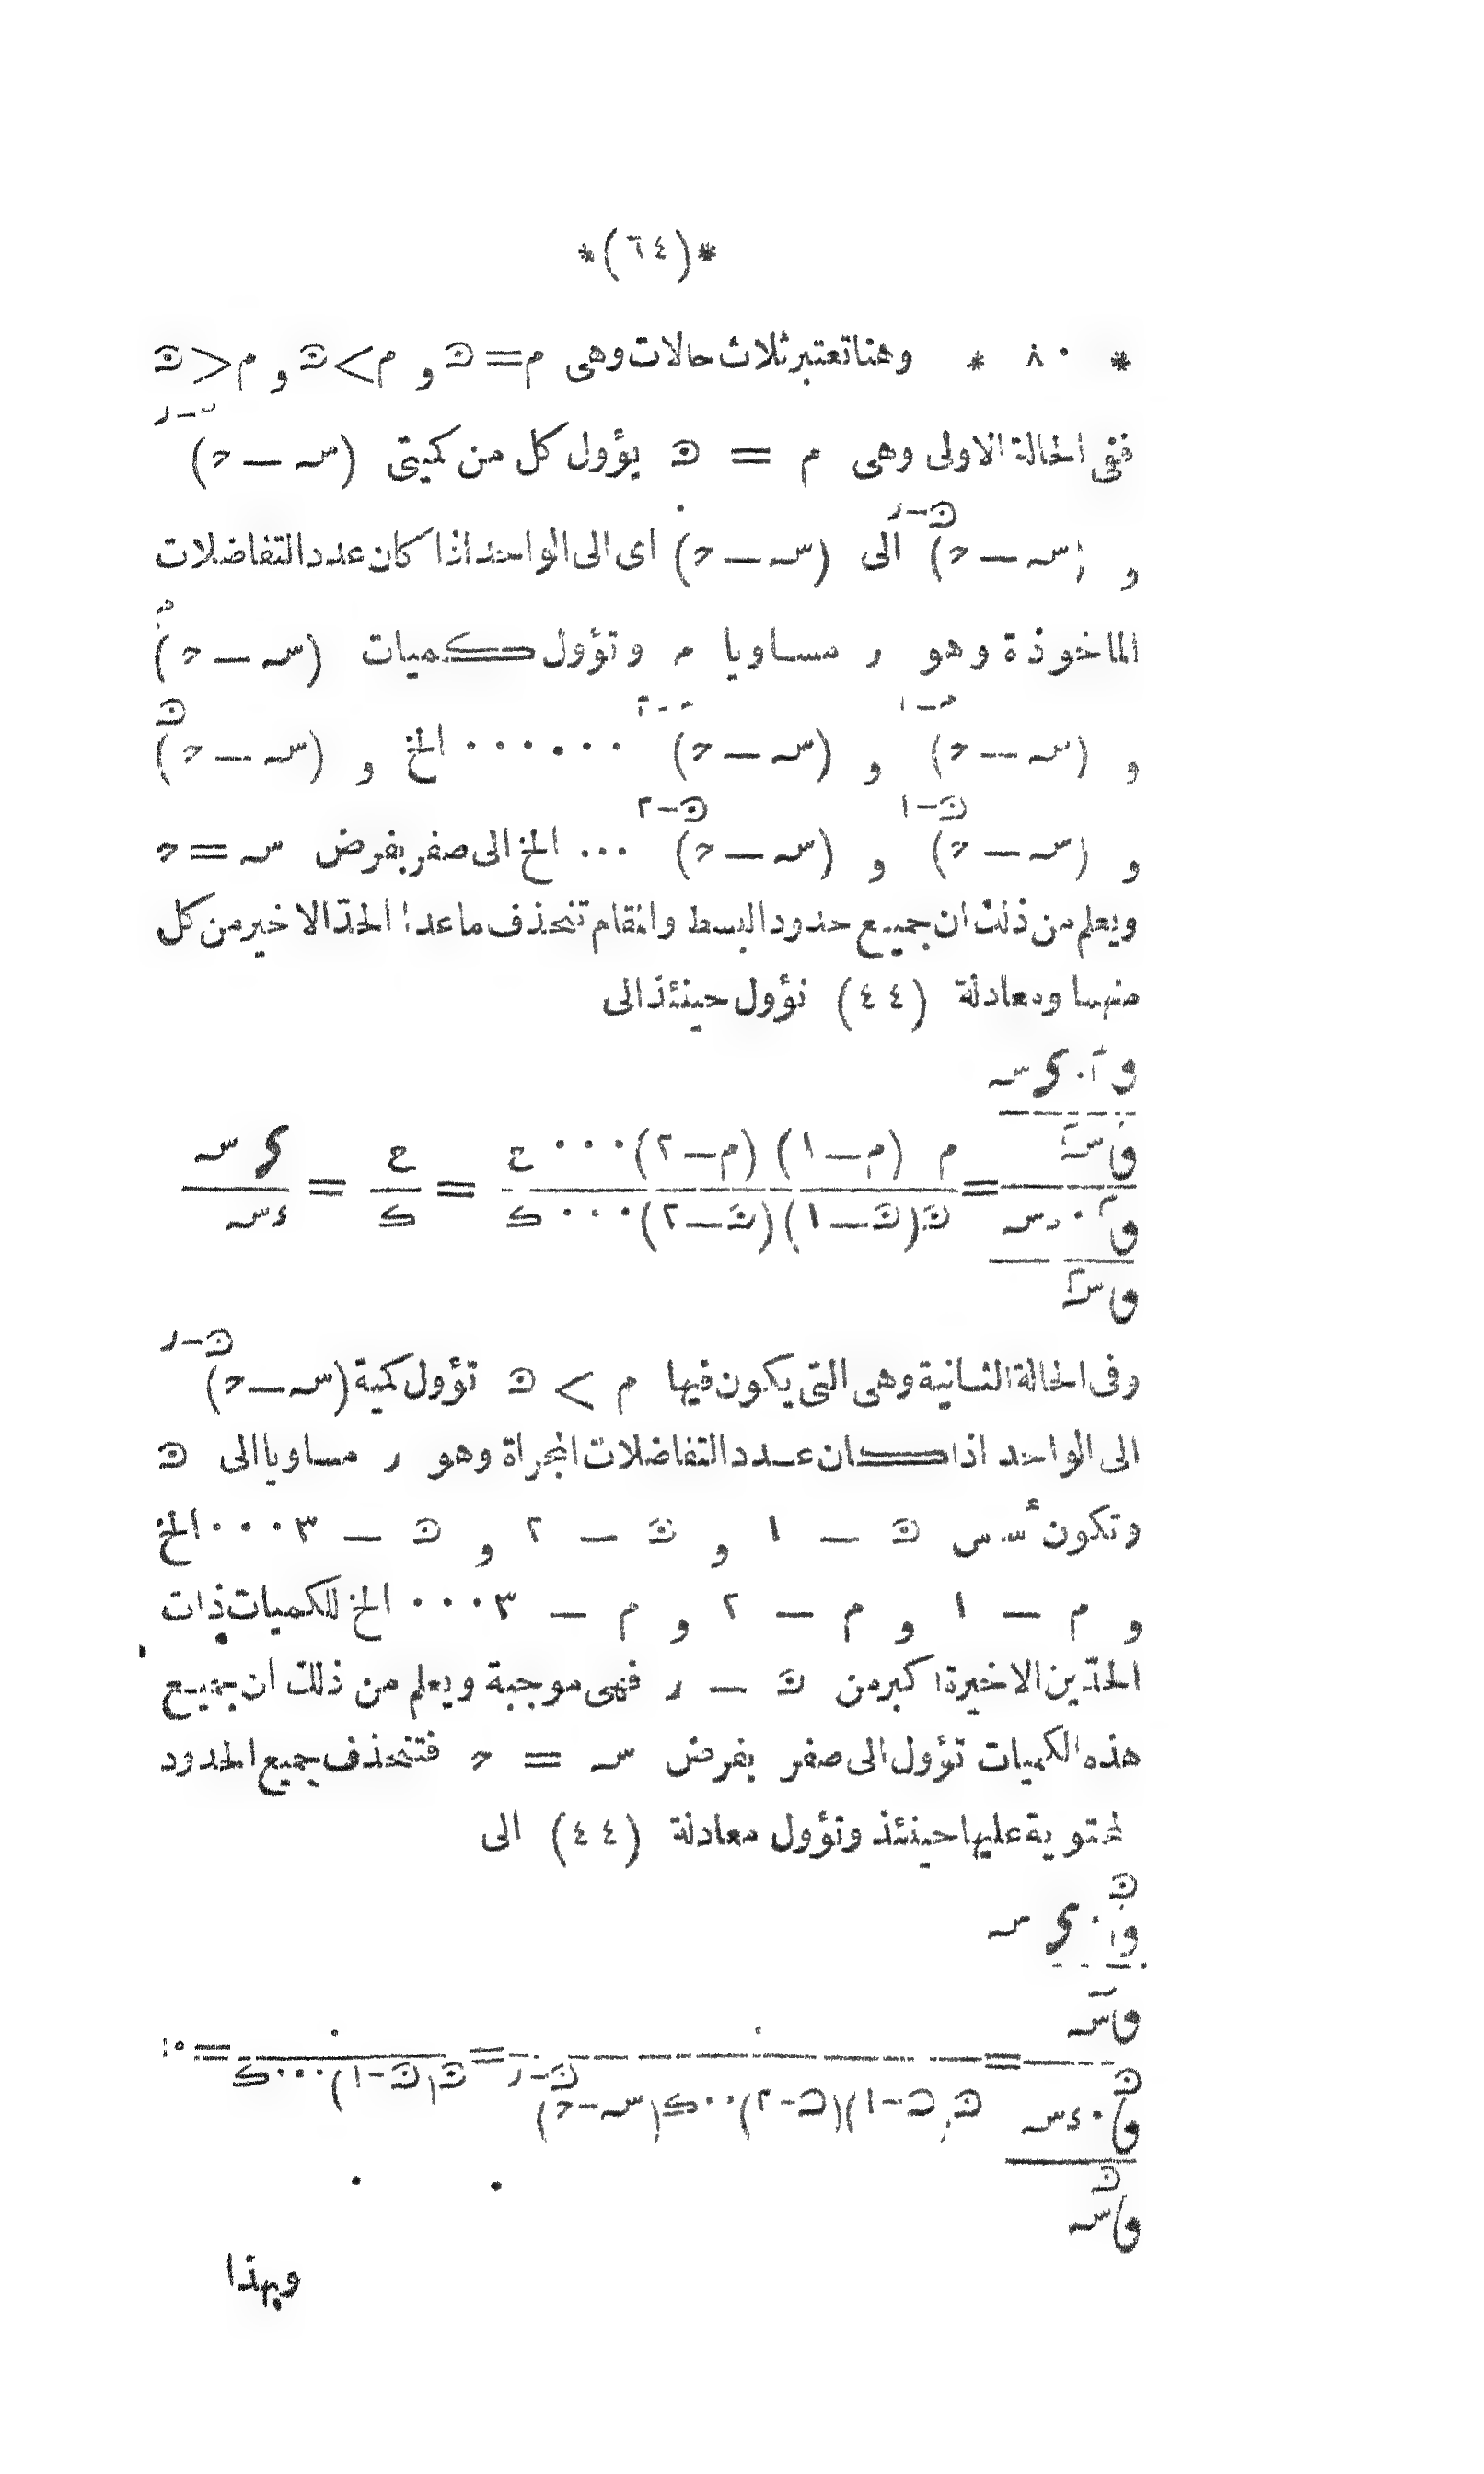 *(٦٤)*
* ٨٠ * وهنا تعتبر ثلاث حالات وهى م = ن و م > ن و م < ن
ففى الحالة الاولى وهى م = ن يؤول كل من كميتى (س – ح)^(م – ر)
و (س – ح)^(ن – ر) الى (س – ح)^٠ اى الى الواحد اذا كان عدد التفاضلات
الماخوذة وهو ر مساويا م وتؤول كميات (س – ح)^م
و (س – ح)^(م – ١) و (س – ح)^(م – ٢) ...... الخ و (س – ح)^ن
و (س – ح)^(ن – ١) و (س – ح)^(ن – ٢) ... الخ الى صفر بفرض س = ح
ويعلم من ذلك ان جميع حدود البسط والمقام تنحذف ماعدا الحدّ الاخير من كل
منهما ومعادلة (٤٤) تؤول حينئذ الى
م (م – ١) (م – ٢) ... ع = ع = س
ن (ن – ١) (ن – ٢) ... ك ك ءس
وفى الحالة الثانية وهى التى يكون فيها م > ن تؤول كمية (س – ح)^(ن – ر)
الى الواحد اذا كان عدد التفاضلات المجراة وهو ر مساويا الى ن
وتكون أسس ن – ١ و ن – ٢ و ن – ٣ ... الخ
و م – ١ و م – ٢ و م – ٣ ... الخ للكميات ذات
الحدّين الاخيرة اكبر من ن – ر فهى موجبة ويعلم من ذلك ان جميع
هذه الكميات تؤول الى صفر بفرض س = ح فتنحذف جميع الحدود
لمحتوية عليها حينئذ وتؤول معادلة (٤٤) الى
ن (ن – ١) (ن – ٢) .. ك (س – ح)^(ن – ر) = ن (ن – ١) ... ك
وبهذا